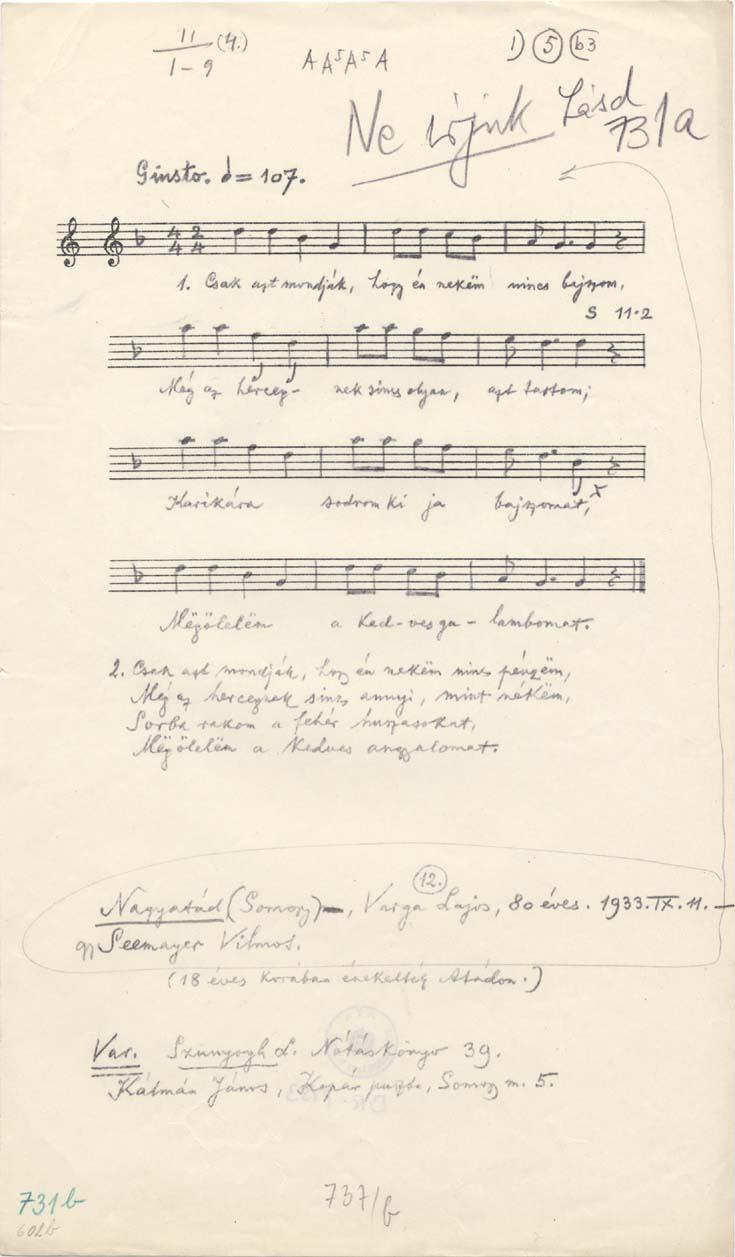 11 (4.)
1-9
A A⁵ A⁵ A
1) 5 b3
Ne írjuk
Lásd
731a
Giusto. ♩= 107.
4 2
4 4
1. Csak azt mondják, hogy én nekëm nincs bajszom,
S 11·2
Még az herceg- nek sincs olyan, azt tartom;
Karikára sodrom ki ja bajszomat, x
Mëgölelëm a Ked-ves ga-lambomat.
2. Csak azt mondják, hogy én nekëm nincs pénzëm,
Még az hercegnek sincs annyi, mint nékëm,
Sorba rakom a fehér huszasokat,
Mëgölelëm a kedves angyalomat.
12.
Nagyatád (Somogy)-, Varga Lajos, 80 éves. 1933.IX.11. -
gy. Seemayer Vilmos.
(18 éves korában énekelték Atádon.)
Var. Szunyogh L. Nótáskönyv 39.
Kálmán János, Kopár puszta, Somogy m. 5.
731b
602b
737/b